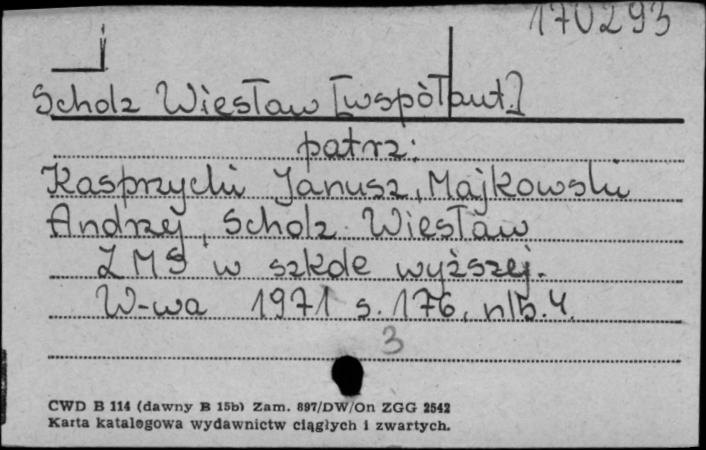 170293
Scholz Wiesław [współaut.]
patrz:
Kasprzycki Janusz, Majkowski
Andrzej, Scholz Wiesław
ZMS w szkole wyższej.
W-wa 1971 s. 176, nlb. 4.
3
CWD B 114 (dawny B 15b) Zam. 897/DW/On ZGG 2542
Karta katalogowa wydawnictw ciągłych i zwartych.